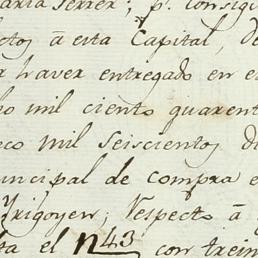 aria Ferrer; p.r consig
ctos á esta Capital, de
r haver entregado en e
ho mil ciento quarent
nco mil seiscientos d
rincipal de compra e
Yrigoyen; Respecto á
ta el n 43 con trein